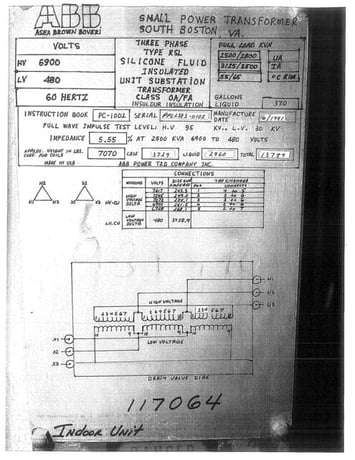 ABB
ASEA BROWN BOVERI
SMALL POWER TRANSFORMER
SOUTH BOSTON, VA.
VOLTS
HV 6900
LV 480
60 HERTZ
THREE PHASE
TYPE RSL
SILICONE FLUID
INSULATED
UNIT SUBSTATION
TRANSFORMER
CLASS OA/FA
FULL LOAD KVA
2500/2800 UA
3125/3500 FA
55/65 °C RISE
GALLONS
LIQUID 370
INSTRUCTION BOOK PC-1002 SERIAL MANUFACTURE DATE
FULL WAVE IMPULSE TEST LEVEL: H.V. 95 KV.. L.V. 30 KV
IMPEDANCE 5.55 % AT 2800 KVA 6900 TO 480 VOLTS
APPROX. WEIGHT IN LBS. 7070 CASE 3729 LIQUID 2960 TOTAL 13759
MADE IN USA ABB POWER T&D COMPANY INC.
CONNECTIONS
WINDING VOLTS TAP CHANGER
HIGH VOLTAGE DELTA
LOW VOLTAGE DELTA 480
HIGH VOLTAGE
LOW VOLTAGE
X1
X2
X3
H1
H2
H3
DRAIN VALVE SIDE
117064
Indoor Unit